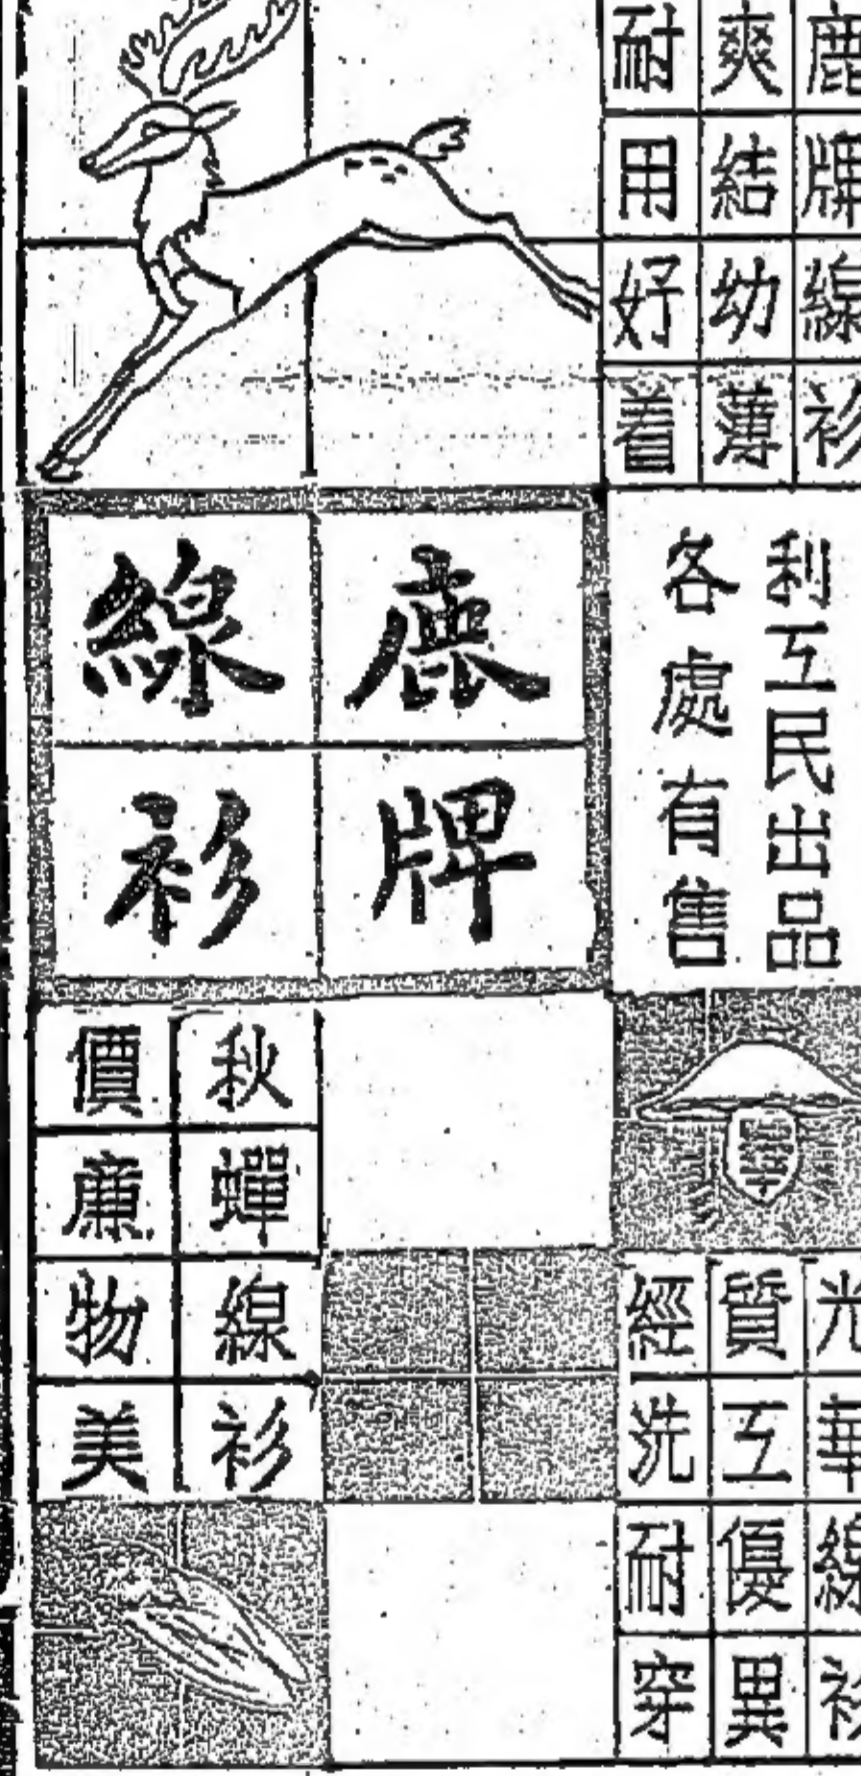 鹿牌線衫
爽結幼薄
耐用好着
鹿牌
線衫
利工民出品
各處有售
秋蟬線衫
價廉物美
光華線衫
質工優異
經洗耐穿